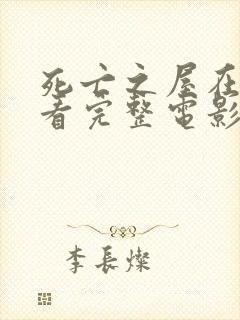 死亡之屋在
看完整电影
李長燦